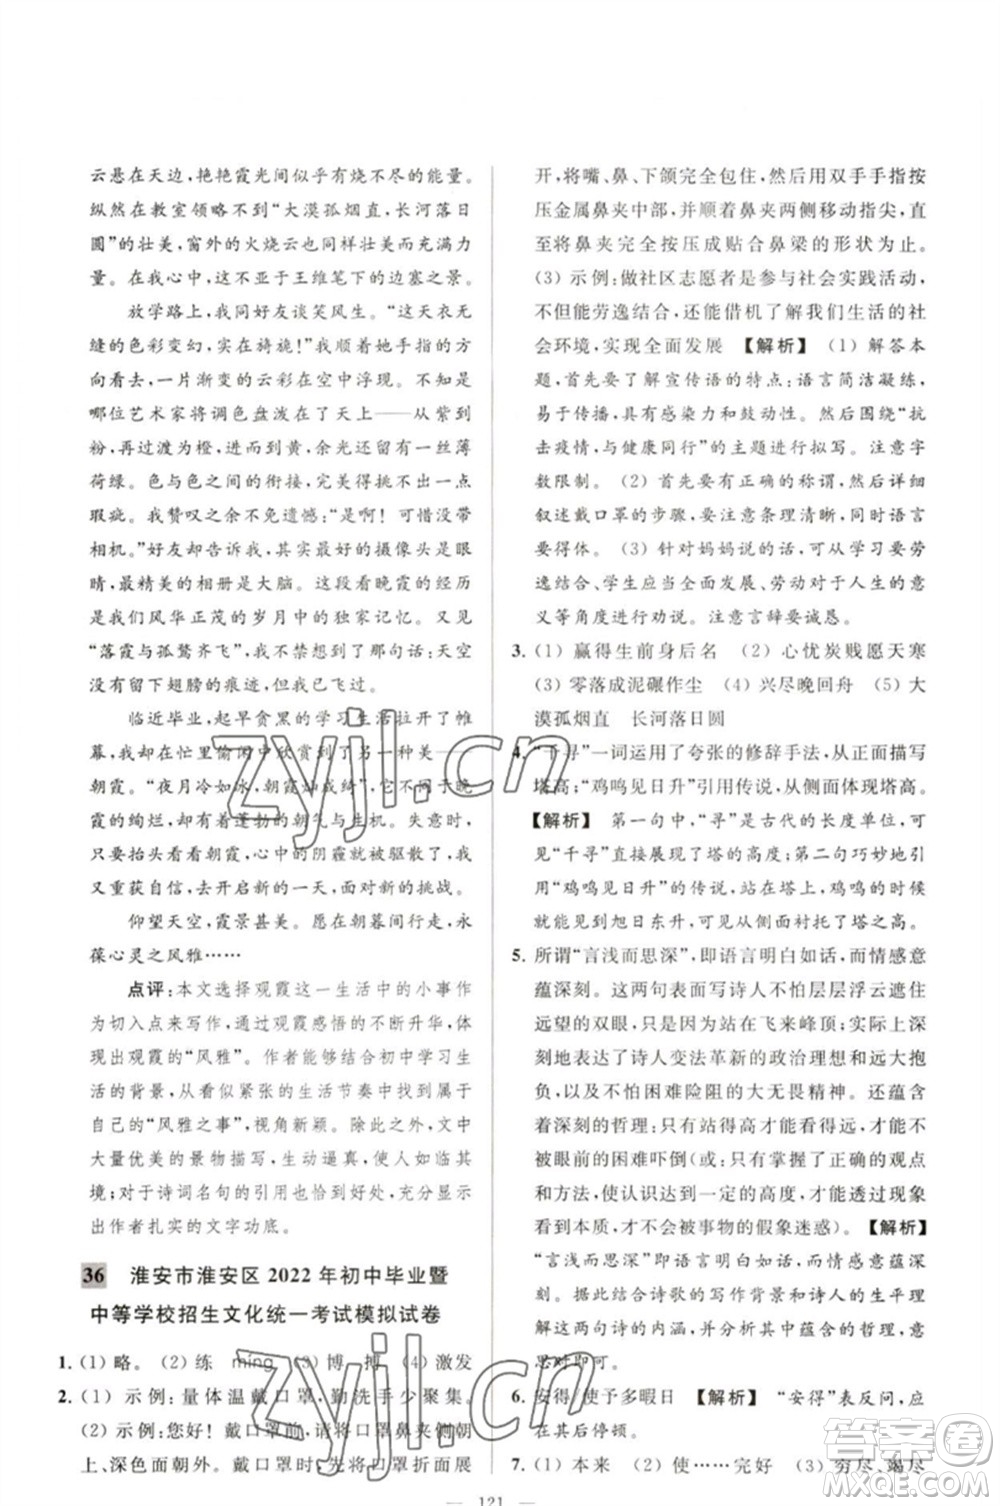 云悬在天边,艳艳霞光间似乎有烧不尽的能量。
纵然在教室领略不到“大漠孤烟直,长河落日
圆”的壮美,窗外的火烧云也同样壮美而充满力
量。在我心中,这不亚于王维笔下的边塞之景。
放学路上,我同好友谈笑风生。“这天衣无
缝的色彩变幻,实在旖旎!”我顺着她手指的方
向看去,一片渐变的云彩在空中浮现。我不知
哪位艺术家将调色盘泼在了天上——从紫到
粉,再过渡为橙,继而到黄,余光一点抹上薄薄
荷绿。色与色之间的衔接,完美得挑不出一点
瑕疵。我赞叹之余不免遗憾:“是啊! 可惜没带
相机。”好友却告诉我,最好的摄像头是眼
睛,最精美的相册是大脑。这段看晚霞的经历
是我们风华正茂的岁月中的独家记忆。我又
联想到“落霞与孤鹜齐飞”的那句话:天空
没有留下翅膀的痕迹,但我已飞过。
临近毕业,起早贪黑的学习生活拉开了帷
幕,我却在忙里偷闲中欣赏到了另一种美——
朝霞。“夜月冷如冰,朝霞灿成绮”,它不同于晚
霞的绚烂,却有着蓬勃的朝气与生机。失意时,
我抬头看看朝霞,心中的阴霾就被驱散了,我
重获自信,去开启新的一天,面对新的挑战。
仰望天空,霞景甚美。愿在朝暮间行走,永
葆心灵之风雅……
点评:本文选择观霞这一生活中的小事作
为切入点来写作,通过观霞感悟的不断升华,体
现出观霞的“风雅”。作者能够结合初中学习生
活的背景,从看似紧张的生活节奏中找寻属于
自己的“风雅之事”,视角新颖。除此之外,文中
大量优美的景物描写,生动逼真,使人如临其
境;对于诗词名句的引用也恰到好处,充分显示
出作者扎实的文字功底。
36 淮安市淮安区 2022 年初中毕业暨
中等学校招生文化统一考试模拟试卷
1. (1) 略。 (2) 练 míng (3) 博 搏 (4) 激发
2. (1) 示例:量体温戴口罩,勤洗手少聚集。
(2) 示例:您好! 戴口罩前,请将口罩鼻夹侧朝
上、深色面朝外。戴口罩时,请上下拉开褶皱展
开,将嘴、鼻、下颌完全包住,然后用双手手指按
压金属鼻夹中部,并向鼻夹两侧移动指尖,直
至将鼻夹完全按压成贴合鼻梁的形状为止。
(3) 示例:做社区志愿者是参与社会实践活动,
不但能劳逸结合,还能借机了解我们生活的社
会环境,实现全面发展 【解析】 (1) 解答本
题,首先要了解宣传语的特点:语言简洁凝练,
易于传播,具有感染力和鼓动性。然后围绕“抗
击疫情,与健康同行”的主题进行拟写。注意字
数限制。 (2) 首先要有正确的称谓,然后详细
叙述戴口罩的步骤,要注意条理清晰,同时语言
要得体。 (3) 针对妈妈说的话,可从学习要劳
逸结合、学生应当全面发展、劳动对于人生的意
义等角度进行劝说。注意言辞要诚恳。
3. (1) 赢得生前身后名 (2) 心忧炭贱愿天寒
(3) 零落成泥碾作尘 (4) 兴尽晚回舟 (5) 大
漠孤烟直 长河落日圆
4. “千寻”一词运用了夸张的修辞手法,从正面描写
塔高;“鸡鸣见日升”引用传说,从侧面体现塔高。
【解析】 第一句中,“寻”是古代的长度单位,
“千寻”直接展现了塔的高度;第二句巧妙地引
用“鸡鸣见日升”的典故,说站在塔上,鸡鸣时
就能见到旭日东升,可以从侧面衬托了塔之高。
5. 所谓“言浅而思深”,即语言明白如话,而情感意
蕴深刻。这两句表面写诗人不怕层层浮云遮住
远望的双眼,只是因为站在飞来峰顶;实际上深
刻地表达了诗人变法革新的政治理想和远大抱
负,以及不怕困难险阻的大无畏精神。还蕴含了
深刻的哲理:只有站得高才能看得远,才不会被
眼前的困难吓倒(或:只有掌握了正确的观点
和方法,使认识达到了一定的高度,才能透过现
象看到本质,才不会被事物的假象迷惑)。【解析】
“言浅而思深”,即语言简洁平实,而意蕴深刻、
含义深远。结合诗歌的写作背景和诗人情感,将
这两句诗的内容和其中蕴含的哲理、意
思对即可。
6. 安得/使予多暇日 【解析】 “安得”表反问,应在
其后停顿。
7. (1) 本来 (2) 完好 (3) 穷尽、竭尽
— 121 —
zyjl.cn
zyjl.cn
答案圈
MXQE.COM